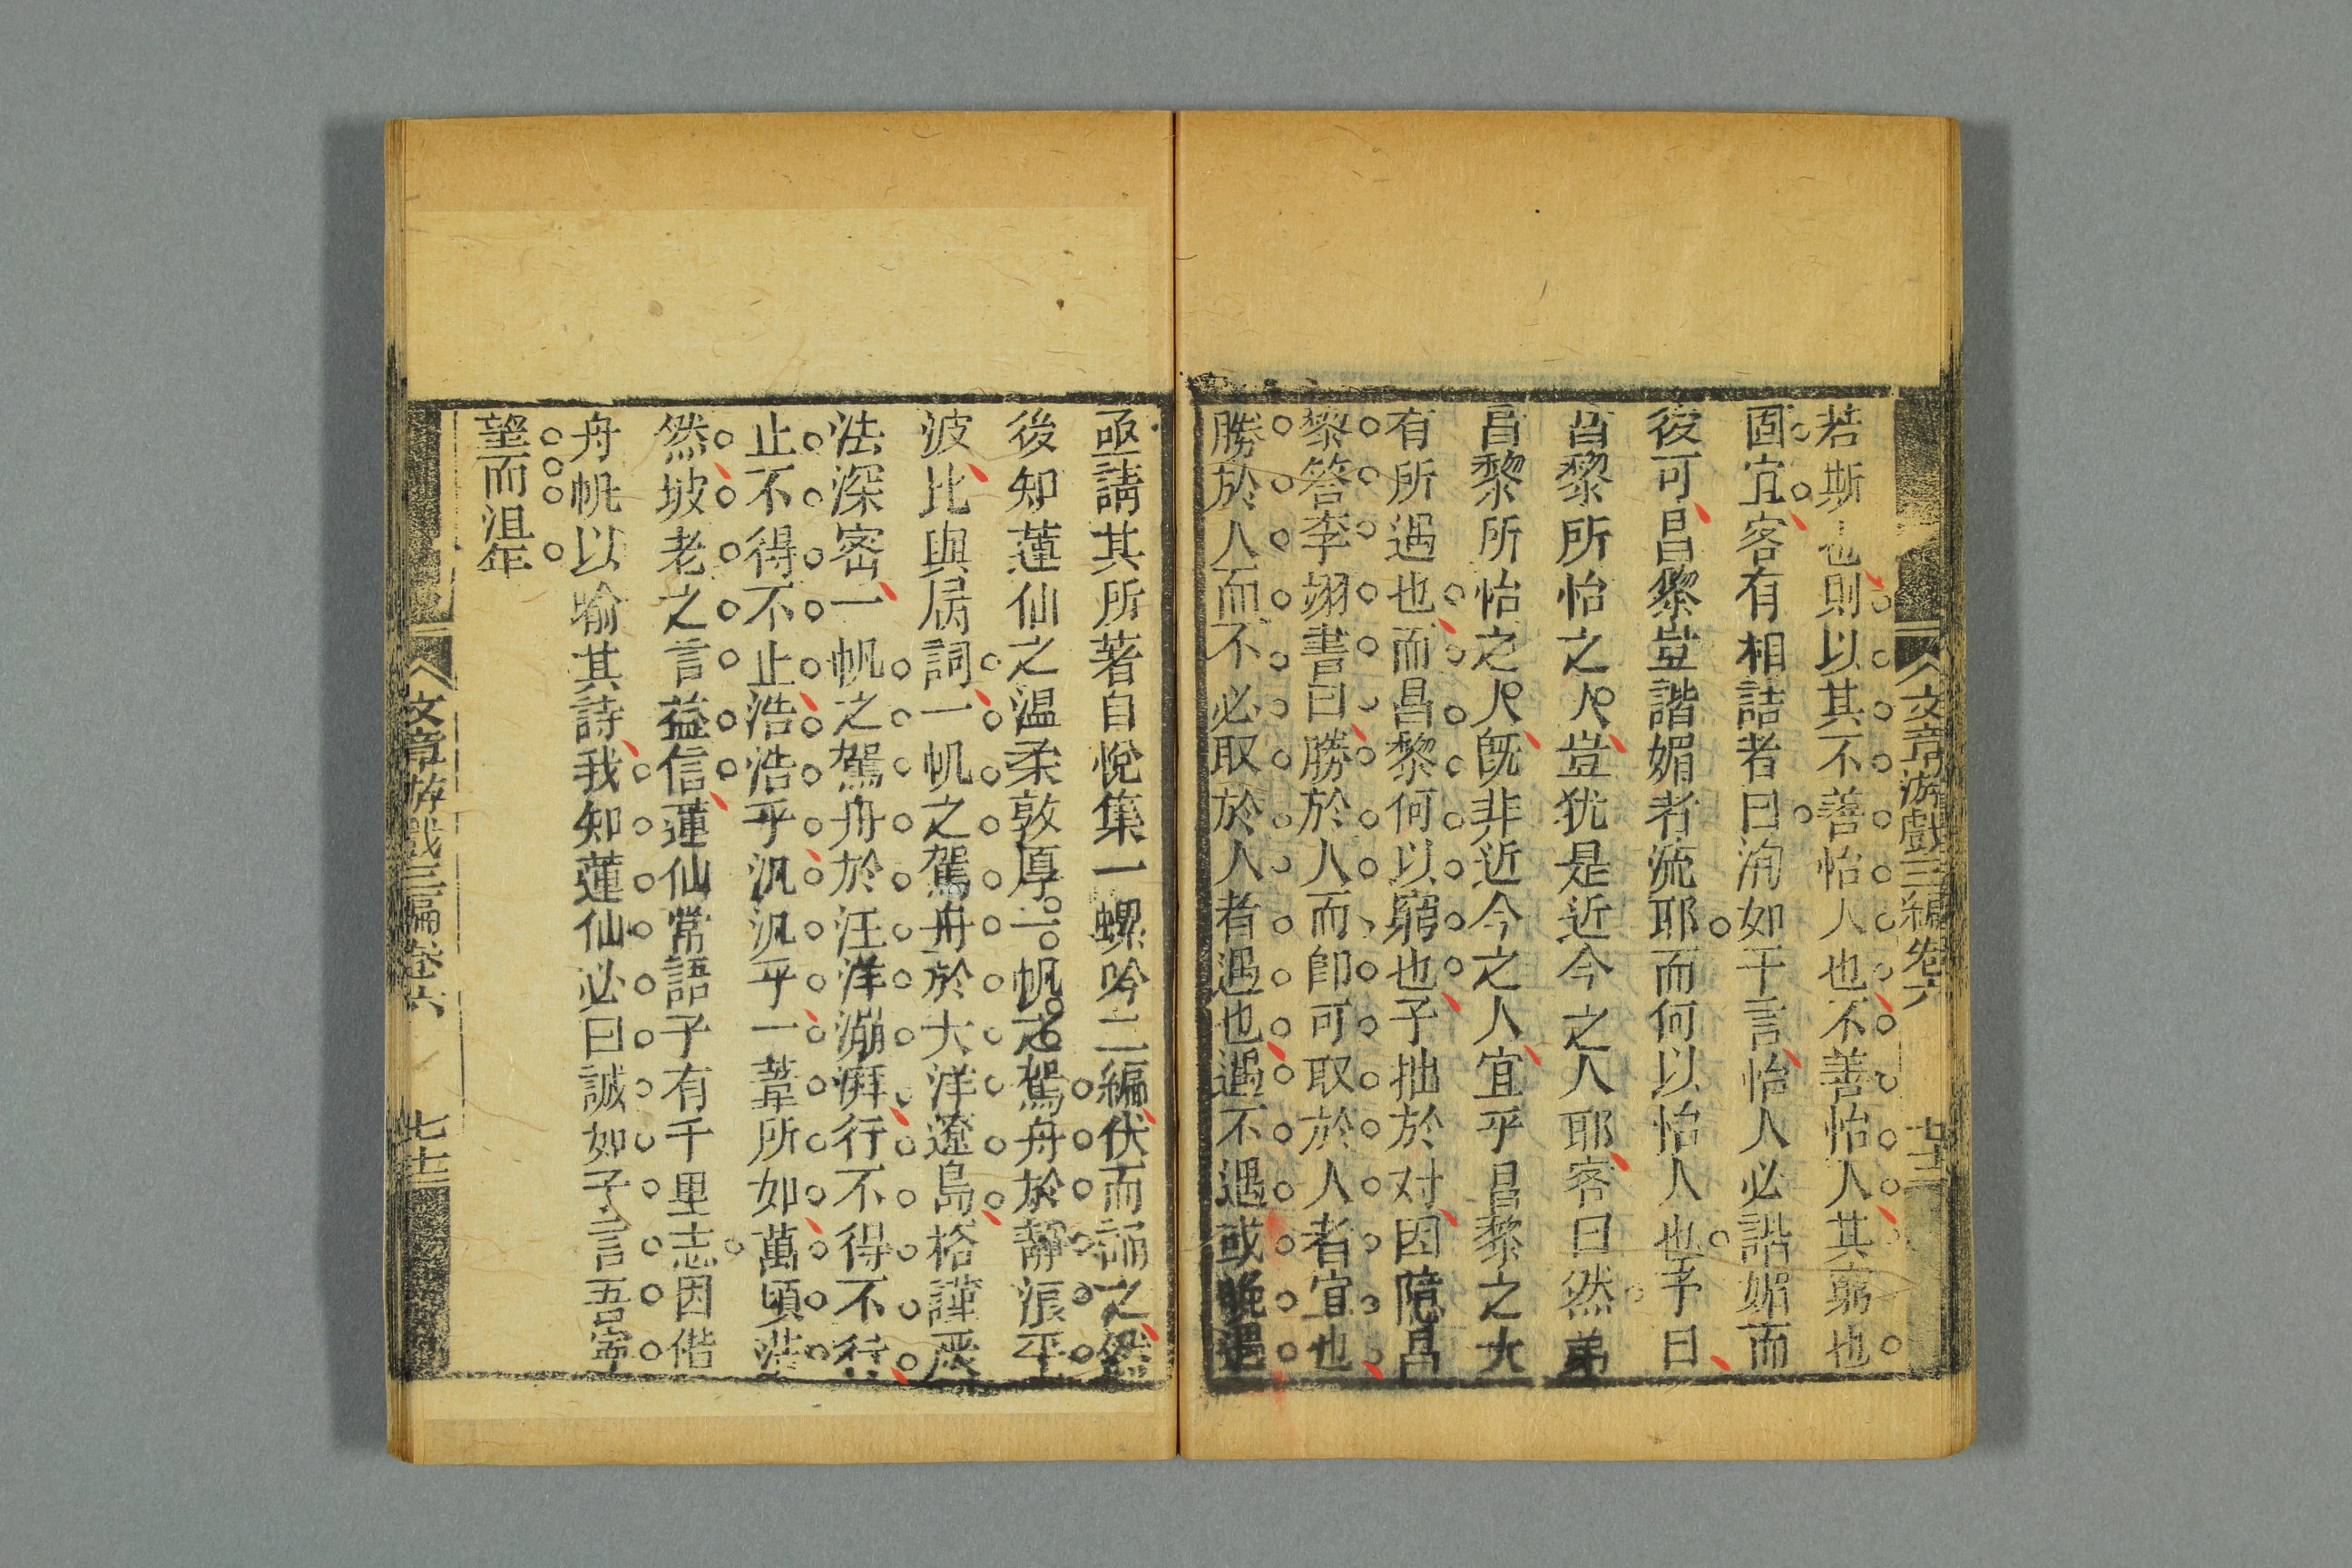 文章游戲三編卷六
若斯也則以其不善怡人也不善怡人其窮也
固宜客有相詰者曰洵如干言怡人必諧媚而
後可昌黎豈諧媚者流耶而何以怡人也予曰
昌黎所怡之人豈犹是近今之人耶客曰然弟
昌黎所怡之人既非近今之人宜乎昌黎之大
有所遇也而昌黎何以窮也予拙於对因隐昌
黎答李翊書曰勝於人而卽可取於人者宜也
勝於人而不必取於人者遇也遇不遇或晚遇
亟請其所著自悅集一螺吟二編伏而誦之然
後知蓮仙之温柔敦厚一帆之駕舟於靜浪平
波比與居詞一帆之駕舟於大洋遼島格謹严
法深密一帆之駕舟於汪洋漰湃行不得不行
止不得不止浩浩乎汎汎乎一葦所如萬頃茫
然坡老之言益信蓮仙常語子有千里志因偕
舟帆以喻其詩我知蓮仙必曰誠如子言吾寧
望而沮年
文章游戲三編卷六
七十三